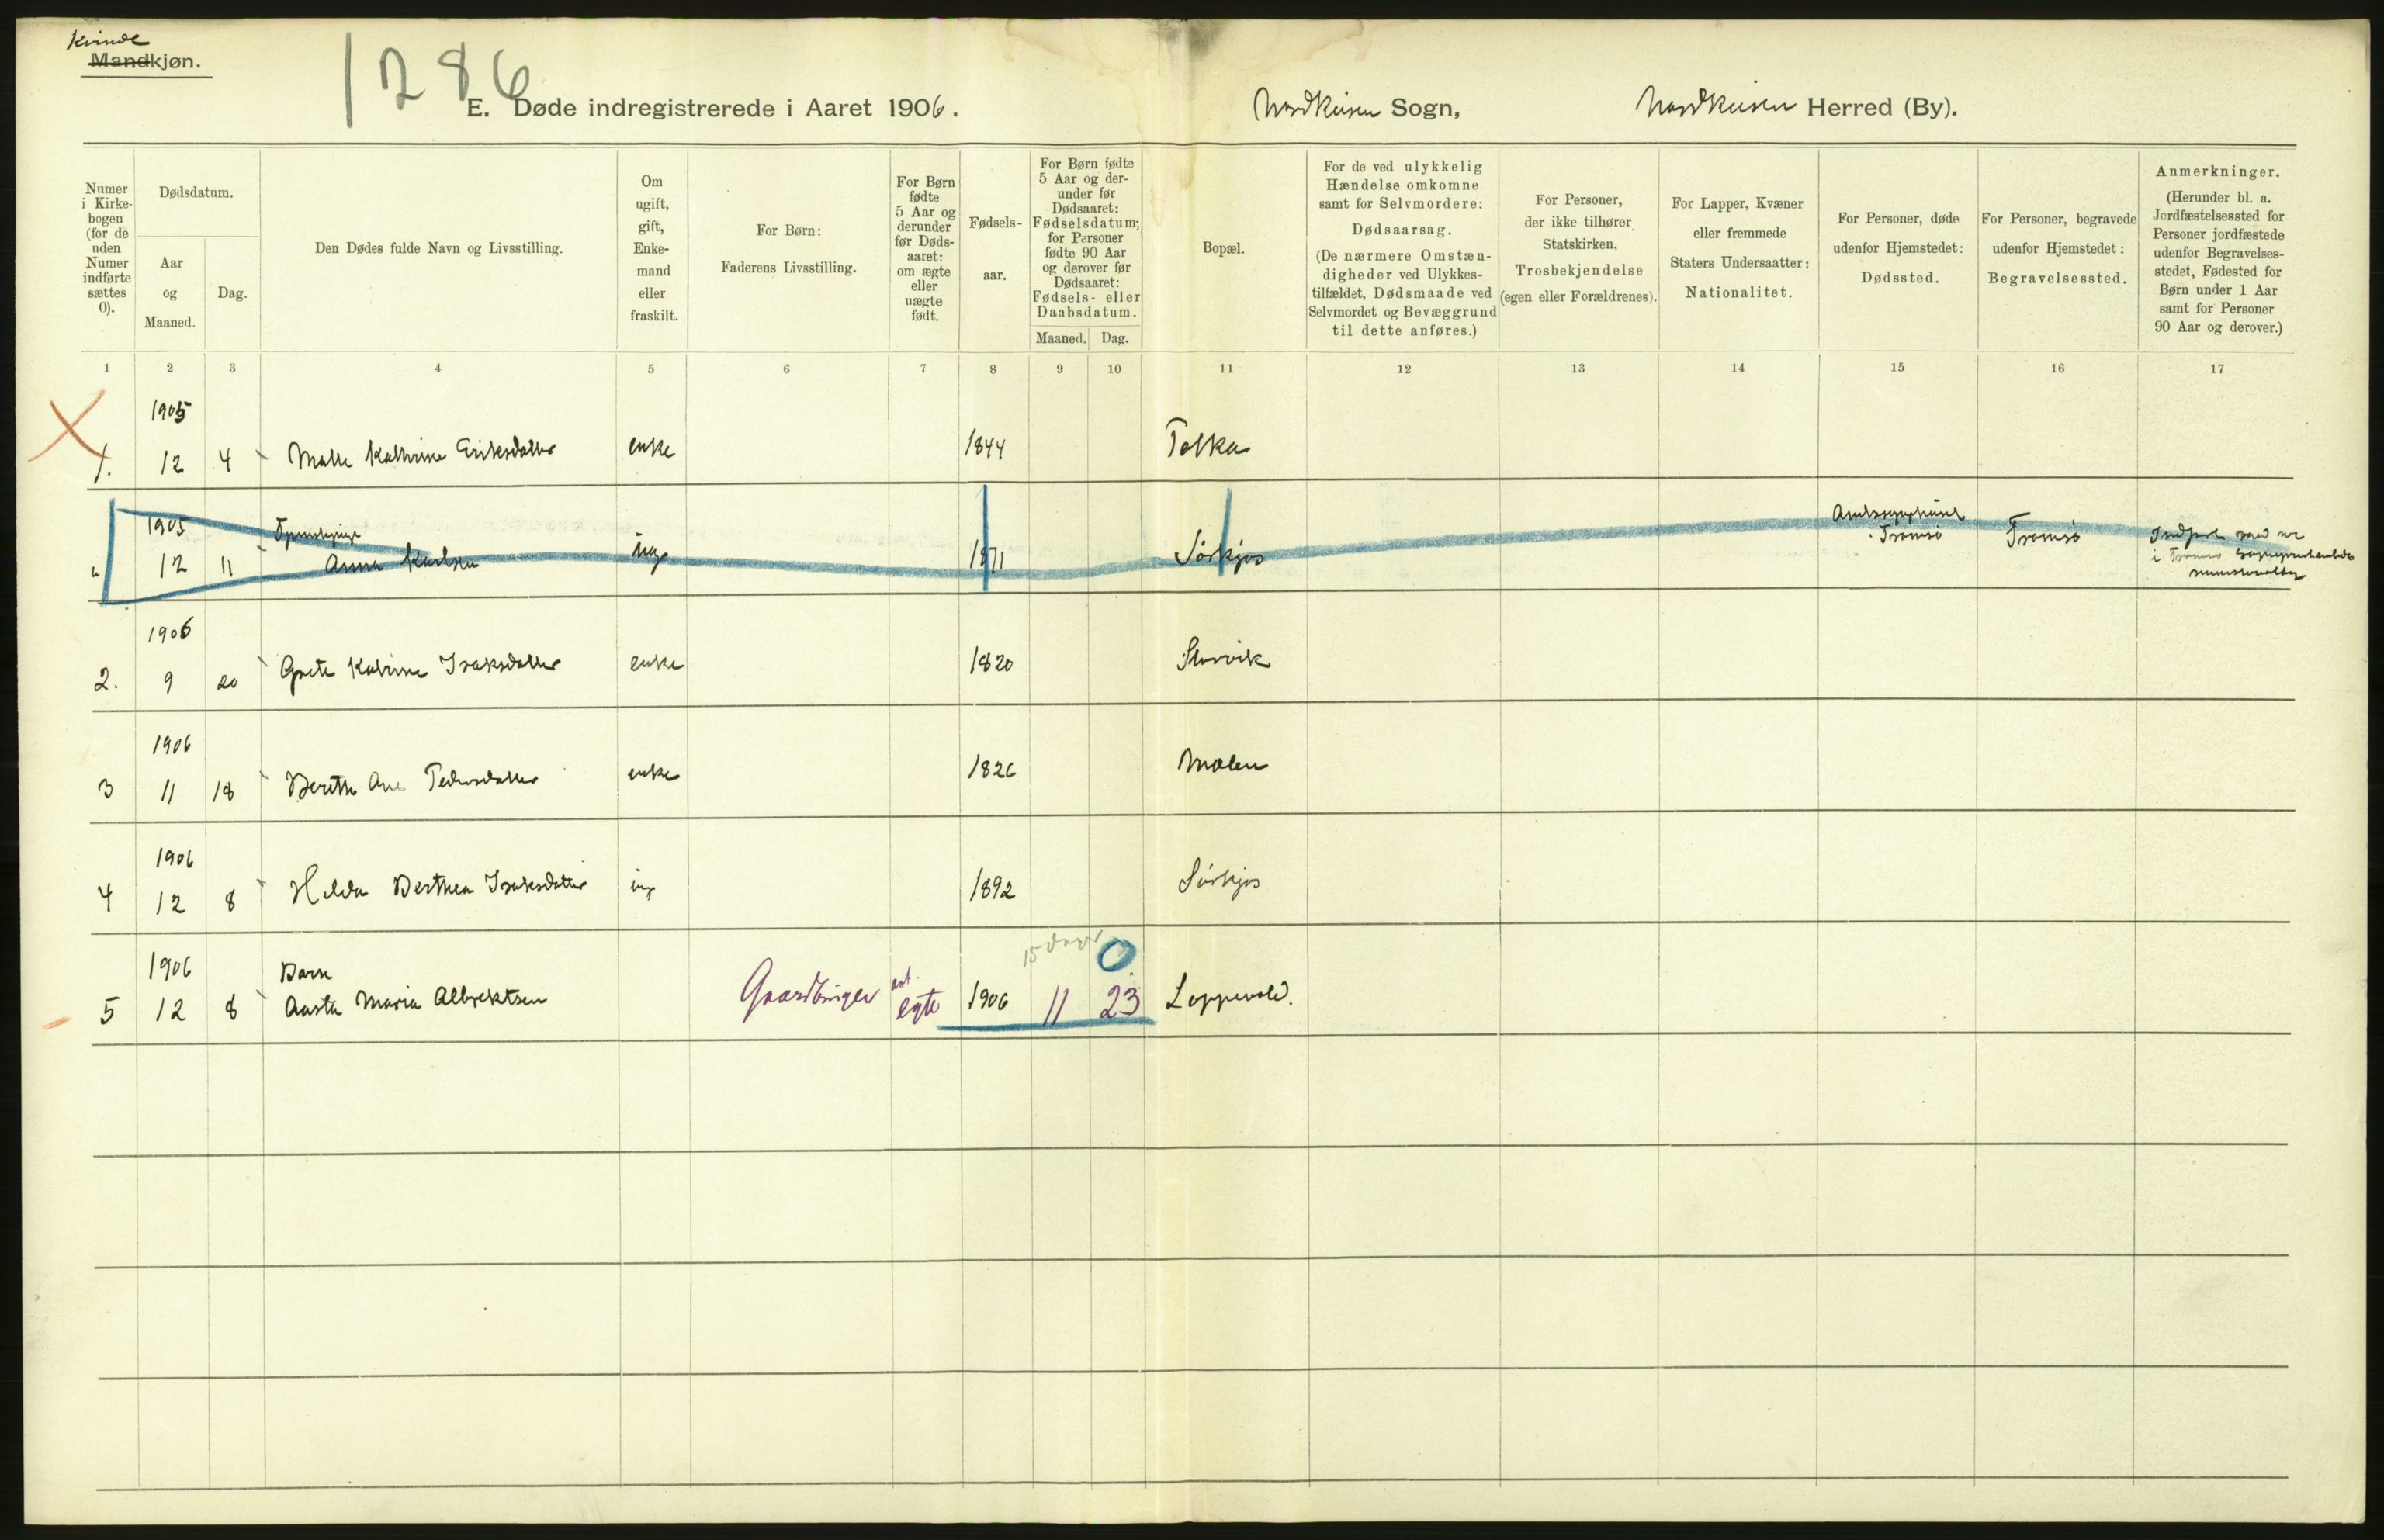 Kvinde
Mandkjøn.
1286
E. Døde indregistrerede i Aaret 1906.
Sogn,
Herred (By).
Numer
i Kirke-
bogen
(for de
uden
Numer
indførte
sættes
0).
Dødsdatum.
Aar
og
Maaned.
Dag.
Den Dødes fulde Navn og Livsstilling.
Om
ugift,
gift,
Enke-
mand
eller
fraskilt.
For Børn:
Faderens Livsstilling.
For Børn
fødte
5 Aar og
derunder
før Døds-
aaret:
om ægte
eller
uægte
født.
Fødsels-
aar.
For Børn fødte
5 Aar og der-
under før
Dødsaaret:
Fødselsdatum;
for Personer
fødte 90 Aar
og derover før
Dødsaaret:
Fødsels- eller
Daabsdatum.
Maaned.
Dag.
Bopæl.
For de ved ulykkelig
Hændelse omkomne
samt for Selvmordere:
Dødsaarsag.
(De nærmere Omstæn-
digheder ved Ulykkes-
tilfældet, Dødsmaade ved
Selvmordet og Bevæggrund
til dette anføres.)
For Personer,
der ikke tilhører
Statskirken,
Trosbekjendelse
(egen eller Forældrenes).
For Lapper, Kvæner
eller fremmede
Staters Undersaatter:
Nationalitet.
For Personer, døde
udenfor Hjemstedet:
Dødssted.
For Personer, begravede
udenfor Hjemstedet:
Begravelsessted.
Anmerkninger.
(Herunder bl. a.
Jordfæstelsessted for
Personer jordfæstede
udenfor Begravelses-
stedet, Fødested for
Børn under 1 Aar
samt for Personer
90 Aar og derover.)
1 2 3 4 5 6 7 8 9 10 11 12 13 14 15 16 17
1905
1. 12 4 Malle Kathrine Eriksdatter enke 1844
1905
12 11 Anna Karlsen ug 1871 Sörkjos Tromsö Tromsö
1906
2. 9 20 Grete Katrine Isaksdatter enke 1820 Storvik
1906
3 11 18 Berith Ane Pedersdatter enke 1826
1906
4 12 8 Hilda Berthea Isaksdatter ug 1892 Sörkjos
15 dage 0
1906 Barn
5 12 8 Aasta Maria Albrektsen Gaardbruger egte 1906 11 23 Loppevold.